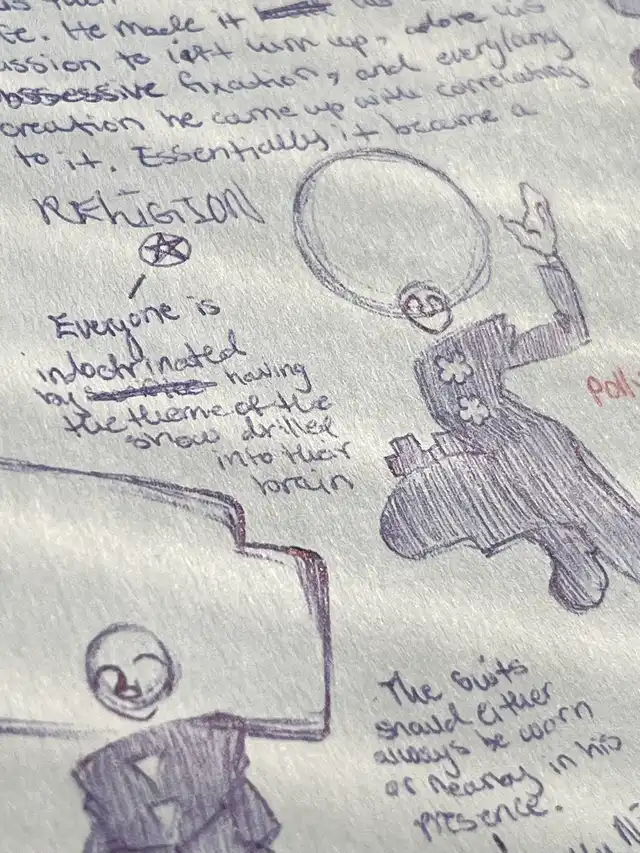 He made it
to lift him up, adore his
obssessive fixation, and everything
creation he came up with correlating
to it. Essentially it became a
RELIGION
Everyone is
indoctrinated
by having
the theme of the
show drilled
into their
brain
The suits
should either
always be worn
or nearby in his
presence.